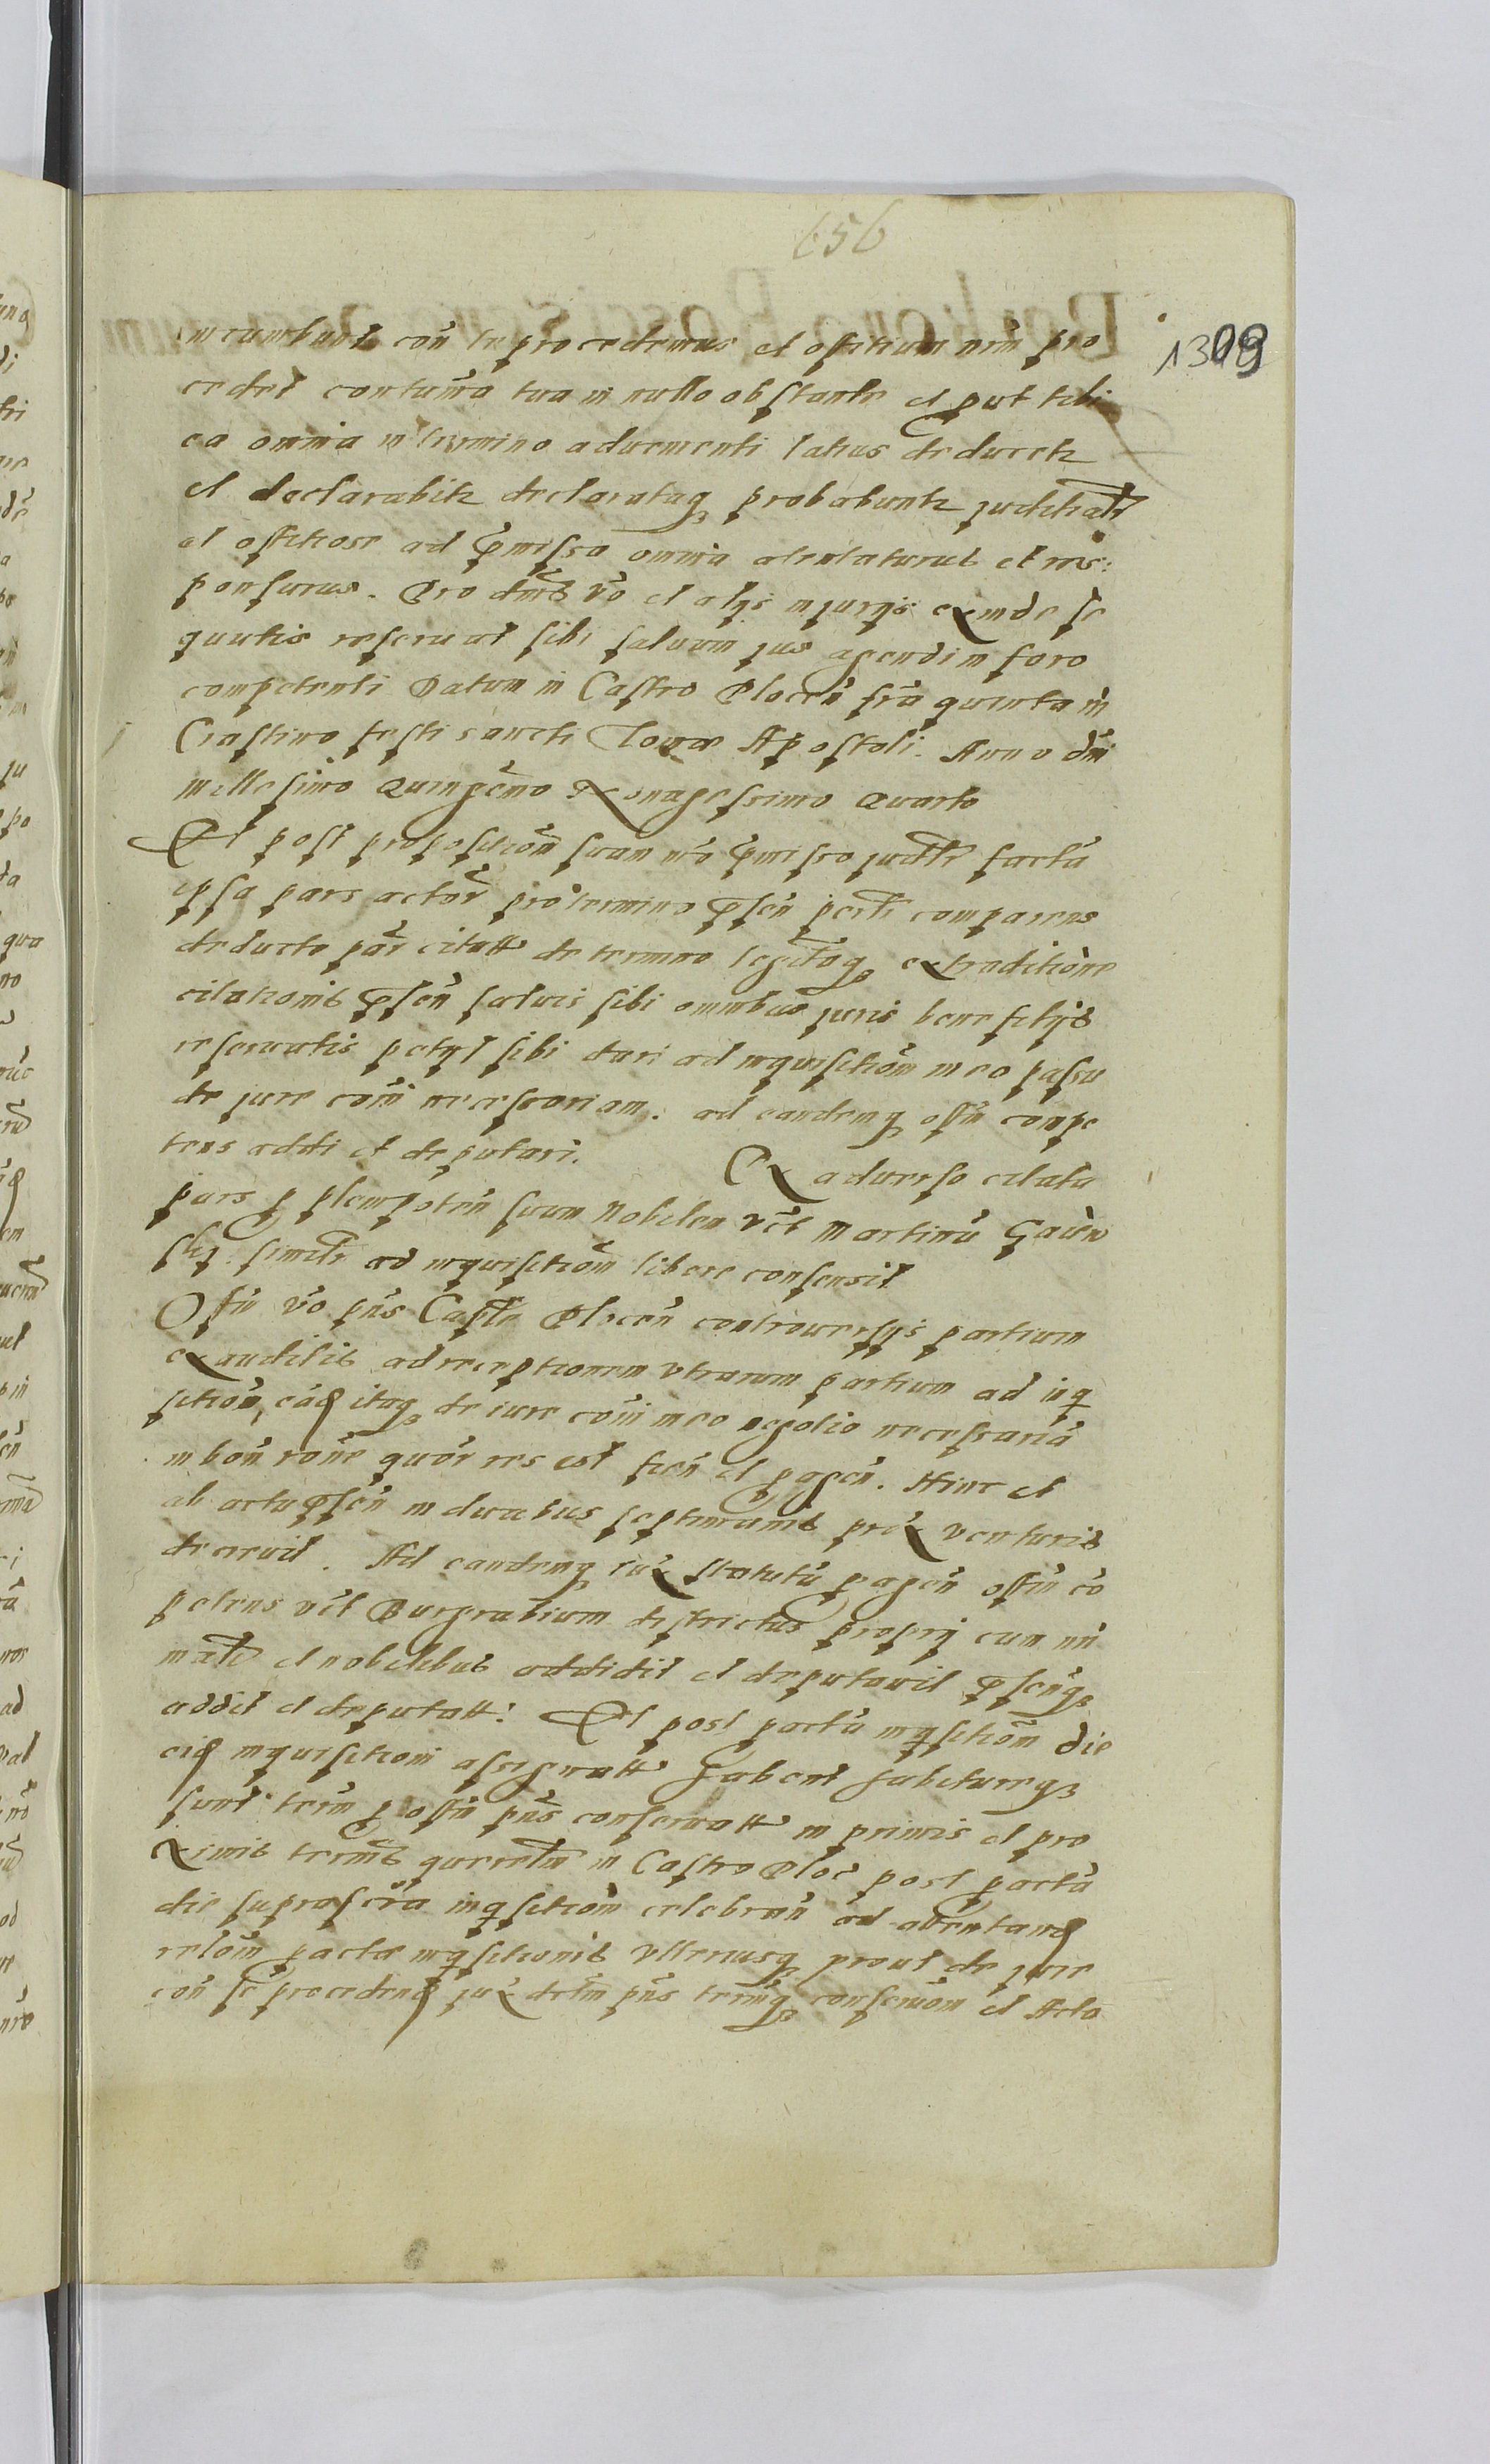 656
1309
incumbunt con̄ te procedemus et offitium nr̄m pro
cedet contum̄a tua in nullo obstante et put tibi
ea omnia in termino aduenienti latius deducetr
et declarabitr declarataqꝫ probabuntr juditialr̄
et offitiose ad p̄missa omnia attentaturus et res:
ponsurus. Pro dm̄s v̄o et alijs iniurijs exinde se
quutis reseruat sibi saluum jus agendi in foro
competenti Datum in Castro Plocen̄ fr̄ia quinta in
Crastino festi sancti Apostoli. Anno dn̄i
millesimo quingēmo Nonagessimo quarto
Et post propositiōm suam m̄o p̄misso judr̄ factū
ipsa pars actor̄ pro termino p̄sen̄ pertr̄ comparens
deducto par̄ citatt de termino legit̄aqꝫ extraditione
citationis p̄sen̄ saluis sibi omnibus juris benefitijs
reseruatis petijt sibi dari ad inquisitiōm in eo passu
de jure com̄ni necessariam. ad eandemqꝫ offiu conpe
tens addi et deputari. Ex aduerso citata
pars p plenipoten̄ suum Nobilem Martinū
skij similr̄ ad inquisitiōm libere consensit
Offiu v̄o pn̄s Castr̄e Plocen̄ controuersijs partium
exauditis ad receptionem vtrarum partium ad inq
sitiōm, itaqꝫ de iure com̄i in eo negotio necessariā
in bon̄ ron̄e quor̄ res est fien̄ et pagen̄. Hinc et
ab actu p̄sen̄ in duabus septimanis prox̄ venturis
decreuit. Ad eandemqꝫ iux̄ statutū pagen̄ offiu cō
petens vc̄t Burgrabium districtus proprij cum mi
nālr̄ et nobilibus addidit et deputauit p̄senqꝫ
addit et deputatt: Et post pactū inqsitiōm die
eiqꝫ inquisitioni assignatt habent habiturqꝫ
sunt term̄ p offiu pn̄s conseruatt in primis et pro
ximis term̄s querelar̄ in Castro Ploc̄ post pactā
die suprascr̄ta inqsitiōm celebran̄ ad attentand
relōm pactae inqsitionis vlteriusqꝫ prout de jure
con̄ se procedend jux̄ pn̄s term̄qꝫ conseruōm et Acta